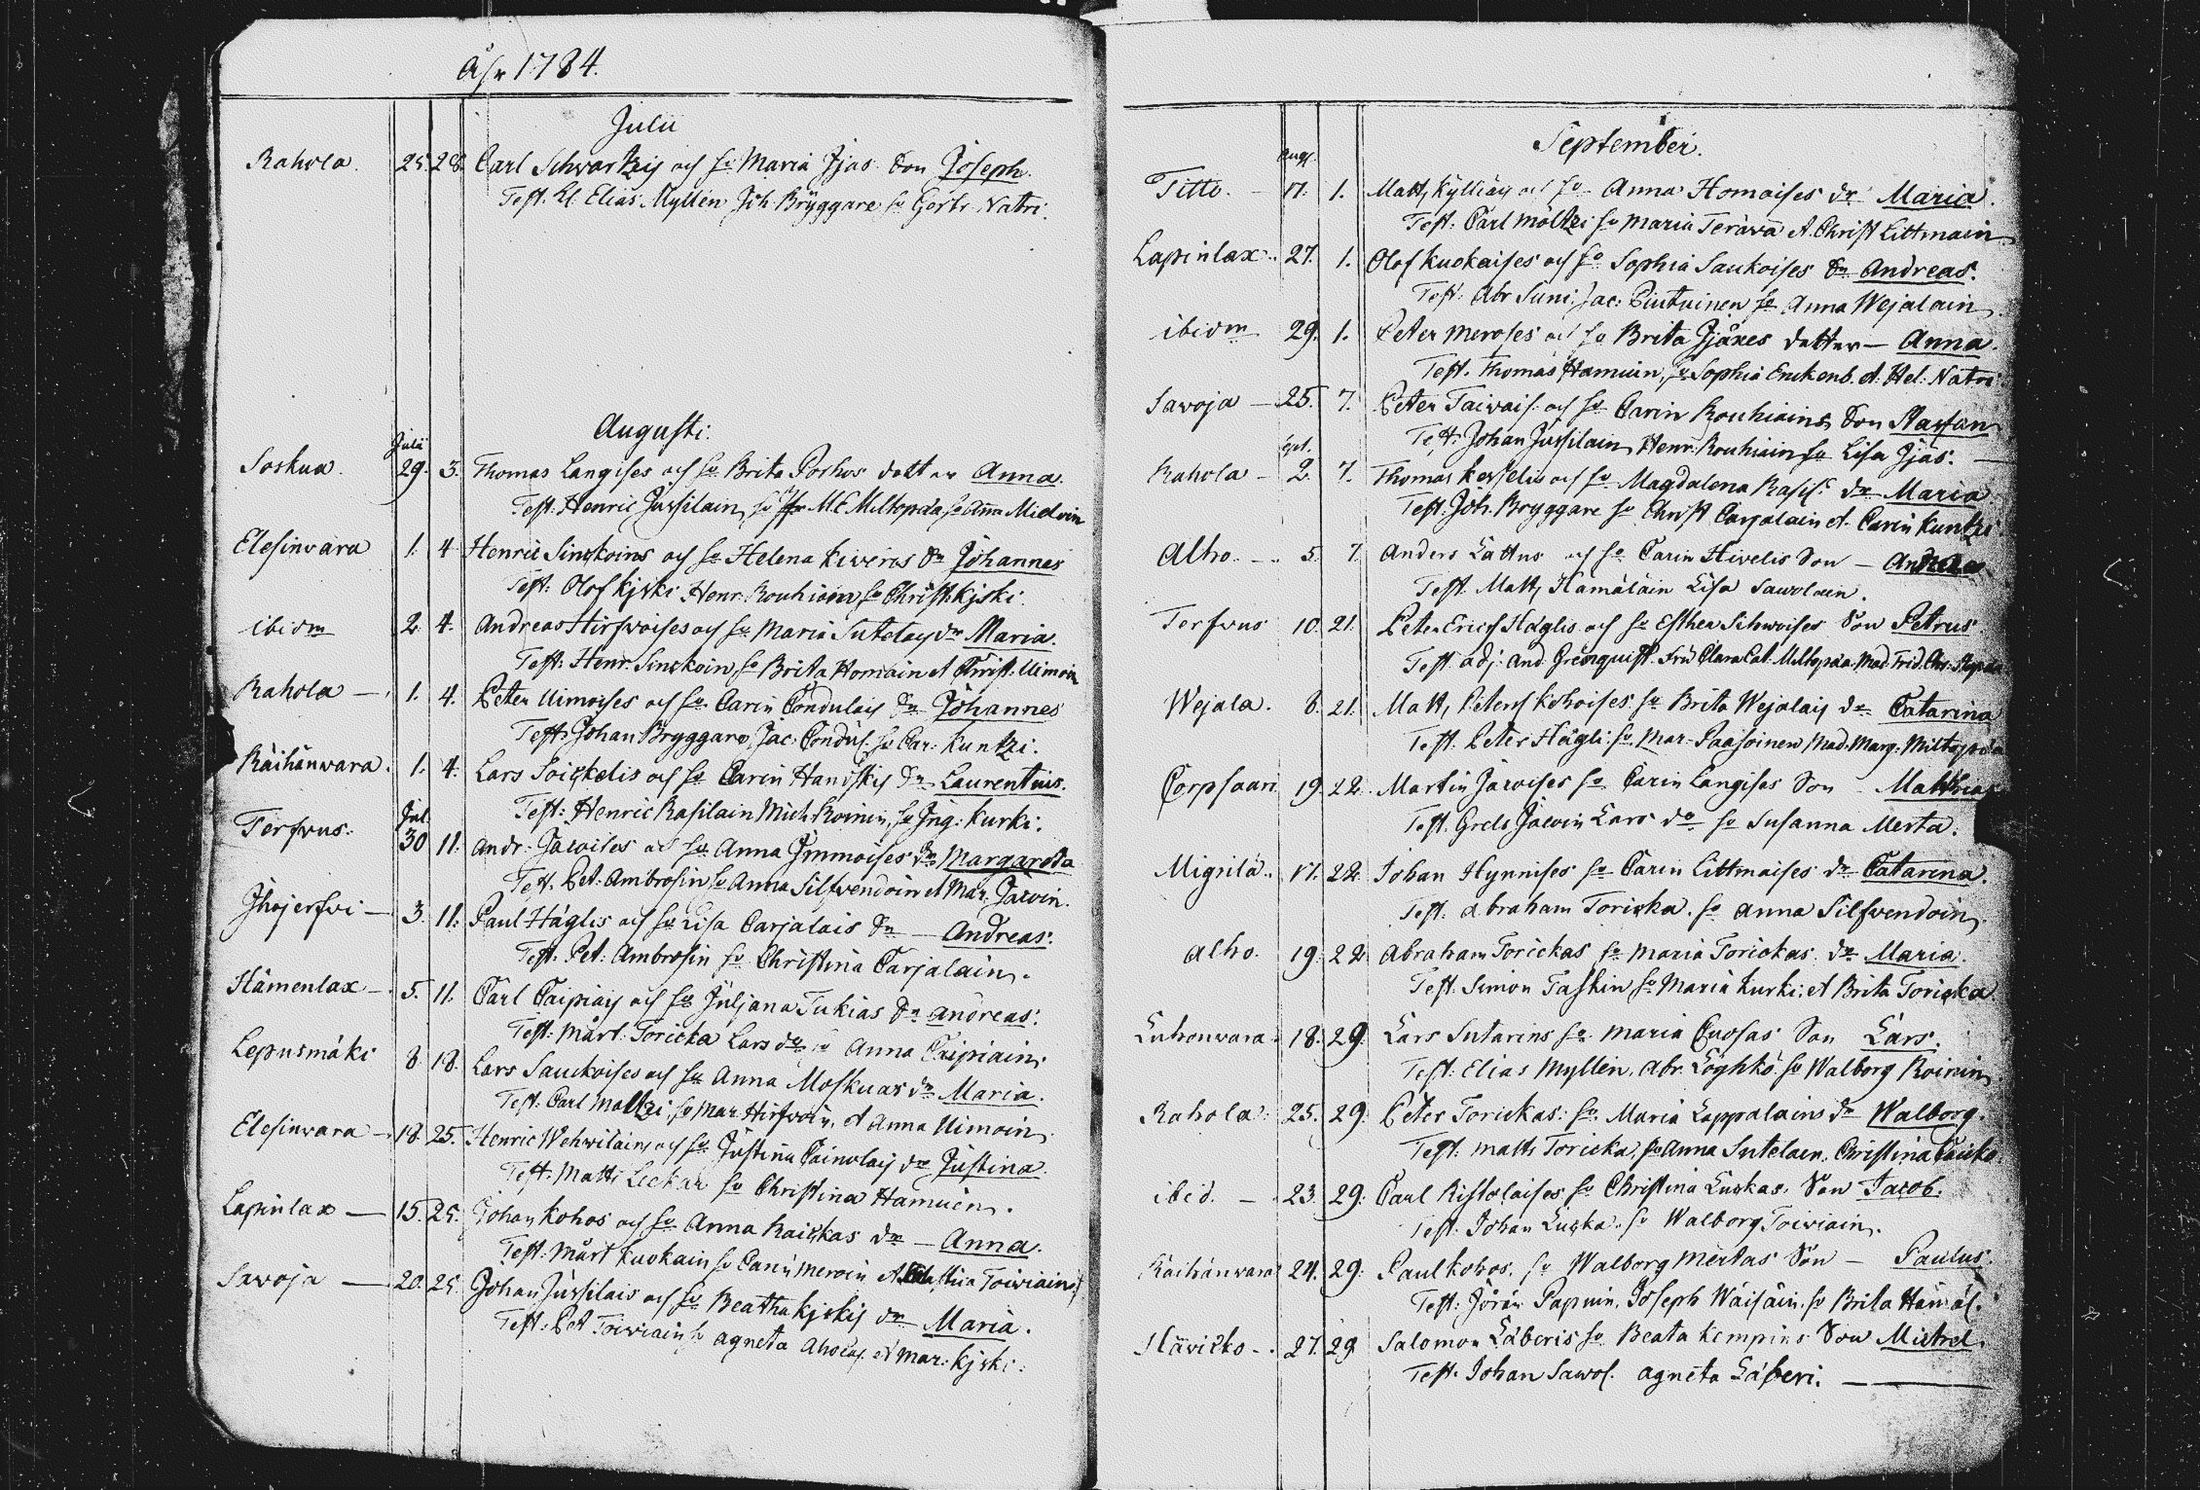 Åhr 1784.
Julii
Rahola. 25. 28. Carl Schwartzis och hu Maria Jjäs Son Joseph.
Test. Kl. Elias Myllén Joh Bryggare hu Gertr. Natri.
Augusti.
Julii
Soskua. 29. 3. Thomas Langises och hu Brita Poskos dotter Anna.
Test. Henric Jussilain, M.C. Miltopæa hu Anna Mieloin
Elesinvara 1. 4 Henric Sinckoins och hu Helena Kiweras Sn Johannes
Test. Olof Kjski Henr. Rouhiain hu Christ. Kjski.
ibidm 2. 4. Andreas Hirfwoises och hu Maria Sutelais dr Maria.
Test. Henr. Sinckoin, hu Brita Homain et Christ. Uimoin
Rahola — 1. 4. Peter Uimoises och hu Carin Condulais Sn Johannes
Test. Johan Bryggare, Jac. Condul. hu Car. Kuntzi.
Räihänwara. 1. 4. Lars Soickelis och hu Carin Hanskis Sn Laurentius.
Test: Henric Rasilain Mich. Roinin, hu Ing: Kurki.
Jul.
Terfwus. 30 11. Andr. Jäwises och hu Anna Immoises dr Margareta
Test. Pet. Ambrosin hu Anna Silfwendoin et Mar. Jäwin.
Jhojerfwi — 3. 11. Paul Häglis och hu Lisa Carjalais Sn — Andreas.
Test. Pet. Ambrosin hu Christina Carjalain.
Hämenlax — 5. 11. Carl Caipiais och hu Juljana Tukias Sn Andreas.
Test: Mårt. Toricka Lars do hu Anna Caipiain.
Lepusmäki 8 18. Lars Sauckoises och hu Anna Moskuas dr Maria.
Test. Carl Maltzi, hu Mar. Hirfwoin, et Anna Uimoin
Elesinvara — 18. 25. Henric Wehwiläins och hu Justina Cainolais dr Justina.
Test. Matts Leckar hu Christina Hamuin.
Lapinlax — 15. 25. Johan Kohos och hu Anna Raickas dr — Anna.
Test. Mårt Kuokain hu Carin Meroin Toiwiain
Savoja — 20. 25. Johan Jussilais och hu Beatha Kjskis dr Maria.
Test. Pet Toiwiain hu Agneta Ahoin. et Mar: Kjski.
September.
Aug.
Titto. — 17. 1. Matts Kylliäis och hu Anna Homaises dr Maria.
Test: Carl Maltzi hu Maria Teräwä et Christ Littmain
Lapinlax. 27. 1. Olof Kuokaises och hu Sophia Saukoises Sn Andreas.
Test. Abr Suni. Jac: Pintuinen hu Anna Wejalain
ibidm 29. 1. Peter Meroses och hu Brita Jjäxes dotter — Anna.
Test. Thomas Hamuin, hu Sophia Enckenb. et Hel. Natri
Savoja — 25. 7. Peter Taiwais och hu Carin Rouhiains Son Staffan
Test. Johan Jussilain Henr. Rouhiain hu Lisa Jjäs. —
Sept.
Rahola — 2. 7. Thomas Kesselis och hu Magdalena Rasil. dr Maria
Test. Joh. Bryggare hu Christ Carjalain et Carin Kuntzi
Alho. — 5. 7. Anders Lattus och hu Carin Hiwelis Son — Andreas
Test. Matts Hämäläin Lisa Sawolain.
Terfwus 10. 21. Peter Ericss Häglis och hu Esther Son Petrus.
Test. adj. And. Grönquist. Fru Clara Cat. Miltopæa. Mad.
Wejala. 8. 21. Matts Peterss Kohoises hu Brita Wejalais dr Catarina
Test. Peter Hägli. hu Mar. Paasoinen Mad. Marg. Miltopæa
Corpsaari 19. 22. Martin Jäwises hu Carin Langises Son — Matthias
Test. Grels Jäwin Lars do hu Susanna Merta.
Mignilä. 17. 22. Johan Hynnises hu Carin Littmaises dr Catarina.
Test. Abraham Toricka. hu Anna Silfwendoin
Alho. 19. 22 Abraham Torickas hu Maria Torickas dr Maria.
Test. Simon Taskin hu Maria Kurki. et Brita Toricka.
Luhonwara. 18. 29. Lars Sutarins hu Maria Cuosas Son Lars.
Test: Elias Myllén, Abr. Löghkö. hu Walborg Roinin
Rahola. 25. 29. Peter Torickas. hu Maria Lappalains dr Walborg.
Test. Matts Toricka, hu Anna Sutelain, Christina
ibid. — 23. 29. Paul Ristolaises hu Christina Luckas. Son Jacob.
Test. Johan Lucka. hu Walborg Toiwiain.
Räihänwara 24. 29. Paul Kohos. hu Walborg Mertas Son — Paulus.
Test: Jöran Papuin. Joseph Wäisäin. hu Brita Hämäl.
Häwickö — 27. 29 Salomon Läberis hu Beata Kempins Son Michel.
Test. Johan Sawol. Agneta Läberi. —